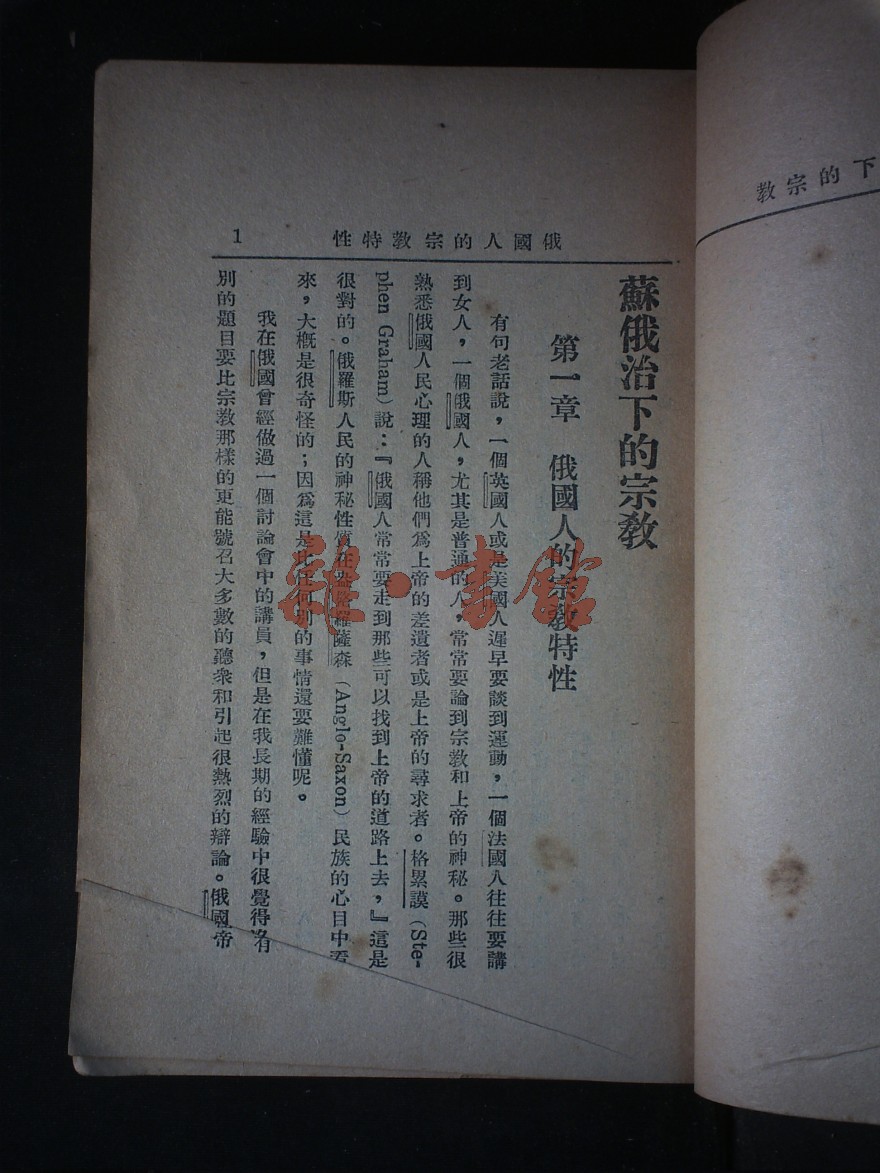 下的宗教
俄國人的宗教特性
1
蘇俄治下的宗教
第一章　俄國人的宗教特性
有句老話說，一個英國人或是美國人遲早要談到運動，一個法國人往往要講
到女人，一個俄國人，尤其是普通的人，常常要論到宗教和上帝的神秘。那些很
熟悉俄國人民心理的人稱他們爲上帝的差遺者或是上帝的尋求者。格累謨（Ste-
phen Graham）說：『俄國人常常要走到那些可以找到上帝的道路上去，』這是
很對的。俄羅斯人民的神秘性質在盎格羅薩森（Anglo-Saxon）民族的心目中看
來，大概是很奇怪的；因爲這是比任何別的事情還要難懂呢。
我在俄國曾經做過一個討論會中的講員，但是在我長期的經驗中很覺得沒有
別的題目要比宗教那樣的更能號召大多數的聽衆和引起很熱烈的辯論。俄國帝
雜·書館